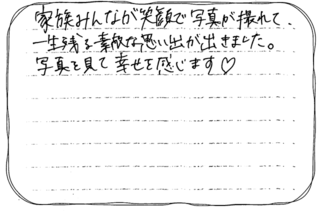 家族みんなが笑顔で写真が撮れて、
一生残る素敵な思い出が出きました。
写真を見て幸せを感じます♡